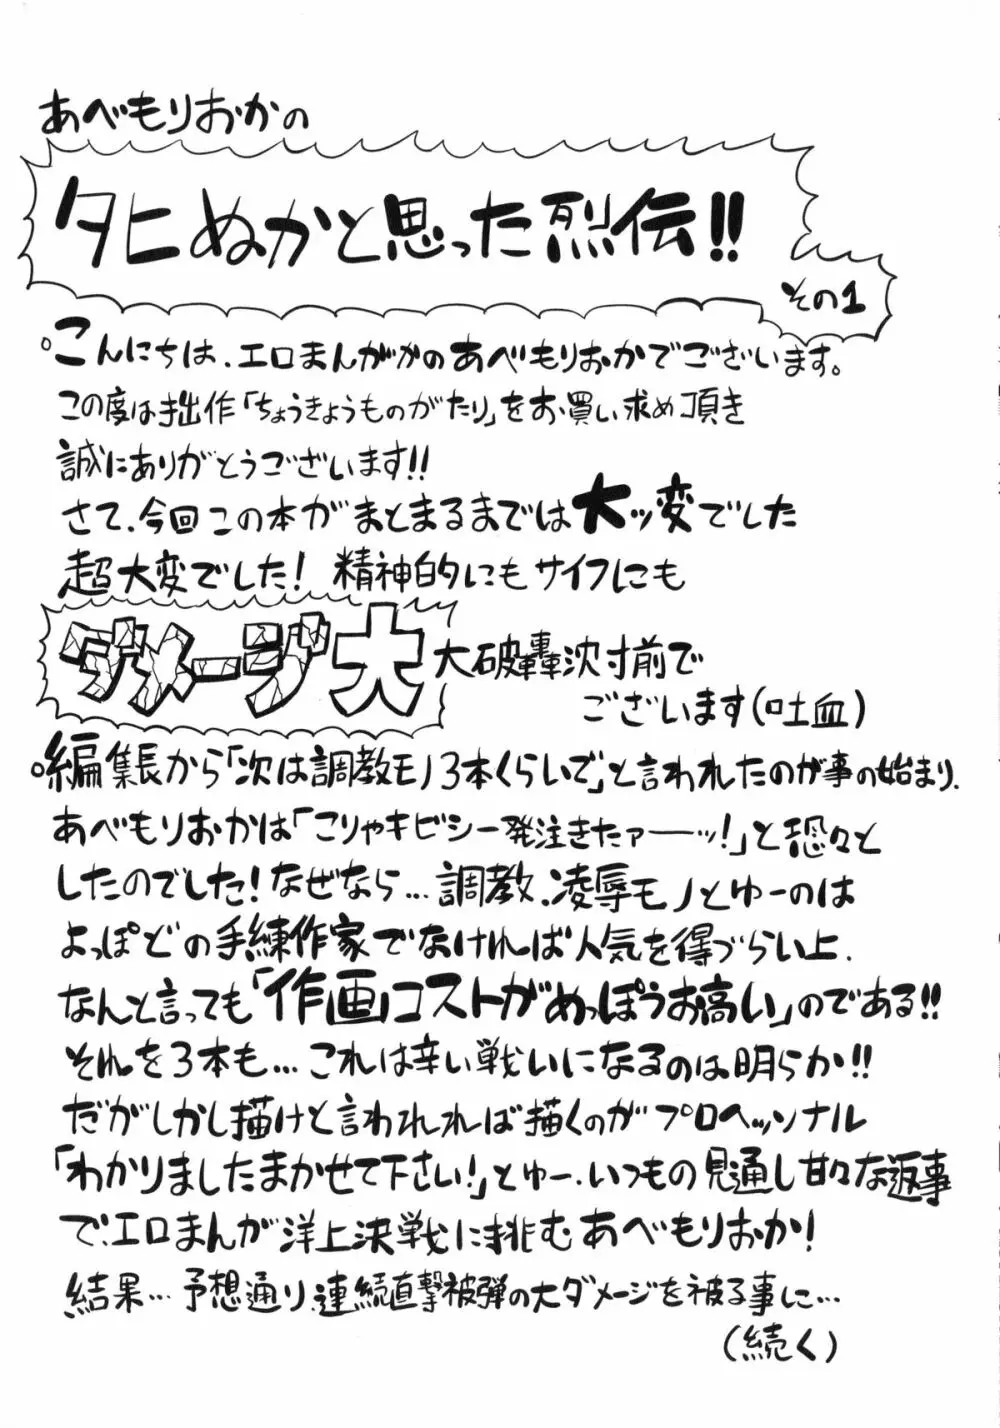 あべもりおかの
タヒぬかと思った烈伝!!
その1
。こんにちは、エロまんがかのあべもりおかでございます。
この度は拙作「ちょうきょうものがたり」をお買い求め頂き
誠にありがとうございます!!
さて、今回この本がまとまるまでは大ッ変でした
超大変でした!精神的にもサイフにも
ダメージ大 大破轟沈寸前で
ございます(吐血)
。編集長から「次は調教モノ3本くらいで」と言われたのが事の始まり、
あべもりおかは「こりゃキビシー発注きたァーーッ!」と恐々と
したのでした!なぜなら…調教、凌辱モノとゆーのは
よっぽどの手練作家でなければ人気を得づらい上、
なんと言っても「作画コストがめっぽうお高い」のである!!
それを3本も…これは辛い戦いになるのは明らか!!
だがしかし描けと言われれば描くのがプロヘッソナル
「わかりましたまかせて下さい!」とゆー、いつもの見通し甘々な返事
で、エロまんが洋上決戦に挑むあべもりおか!
結果…予想通り、連続直撃被弾の大ダメージを被る事に…
(続く)